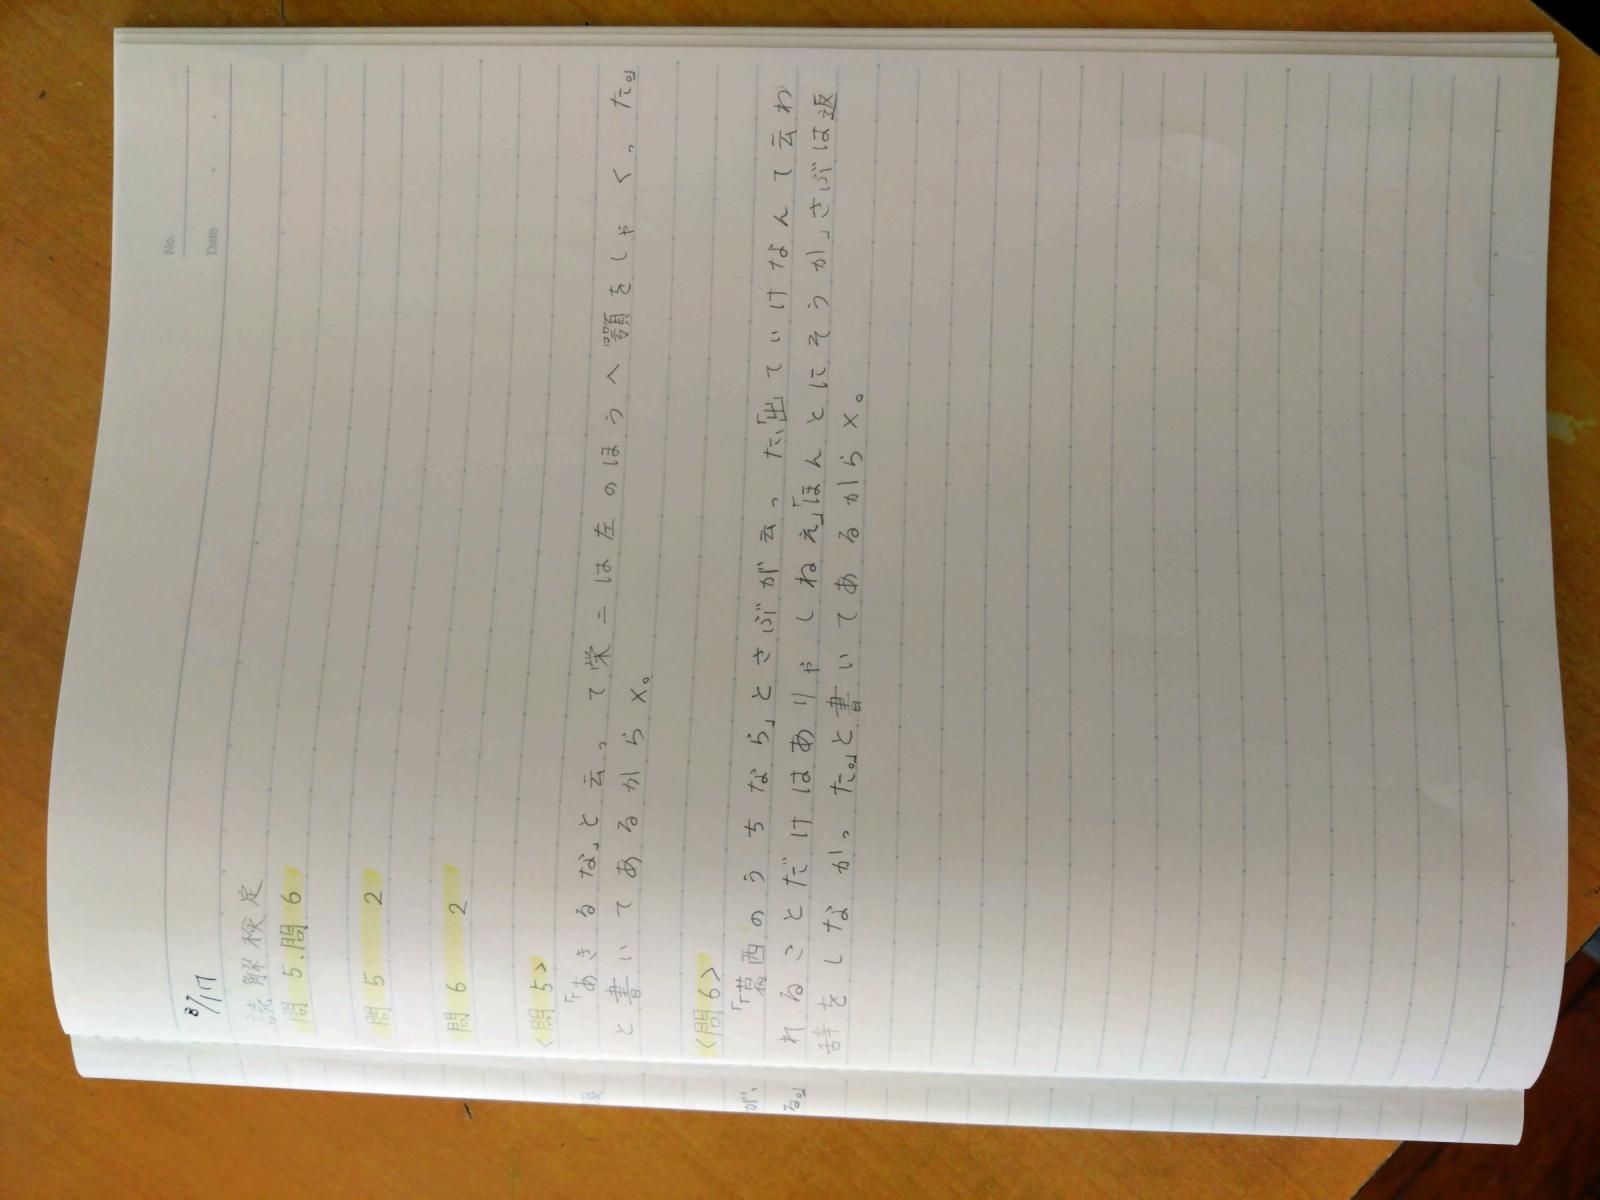 No.
Date
8/17
読解検定
問5、問6
問5 2
問6 2
<問5>
「あきるな」と云って栄二は左のほうへ顎をしゃくった。」
と書いてあるから×。
<問6>
「葛西のうちなら」とさぶが云った、「出ていけなんて云わ
れることだけはありゃしねえ」「ほんとにそうか」さぶは返
辞をしなかった。」と書いてあるから×。
が、
る。」